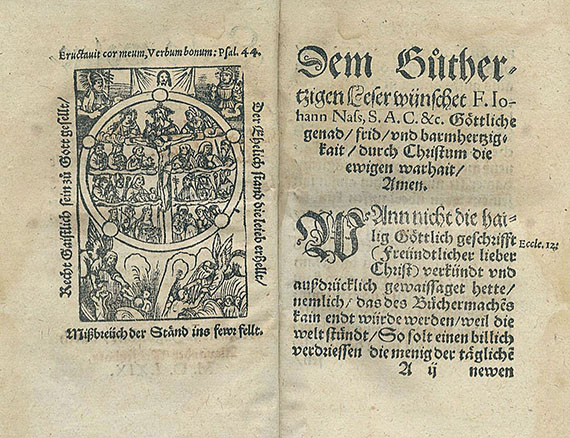 Eructauit cor meum, Verbum bonum: Psal. 44.
Recht Gaistlich sein zů Gott gesellt/
Der Ehelich stand die leieb erhellt/
Mißbreüch der Ständ ins fewr fellt.
Dem Gůther-
tzigen Leser wünschet F. Io-
hann Nass, S. A. C. &c. Göttliche
genad/ frid/ vnd barmhertzig-
kait/ durch Christum die
ewigen warhait/
Amen.
WAnn nicht die hai-
lig Göttlich geschrifft
Freündtlicher lieber
Christ/ verkündt vnd
außdrücklich geweissaget hette/
nemlich/ das des Bůchermachēs
kain endt würde werden/ weil die
welt stündt/ So solt einen billich
verdriessen die menig der täglichē
A ij newen
Eccle. 12.